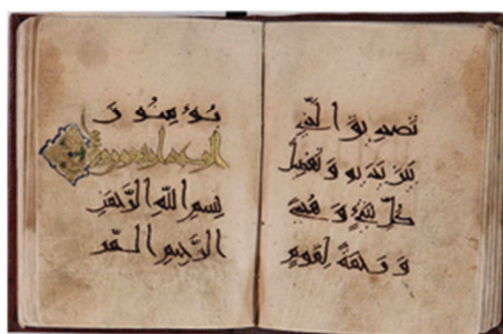 تصديق الذي
بين يديه وتفصيل
كل شيء وهدى
ورحمة لقوم
يؤمنون
الرعد
بسم الله الرحمن
الرحيم المر